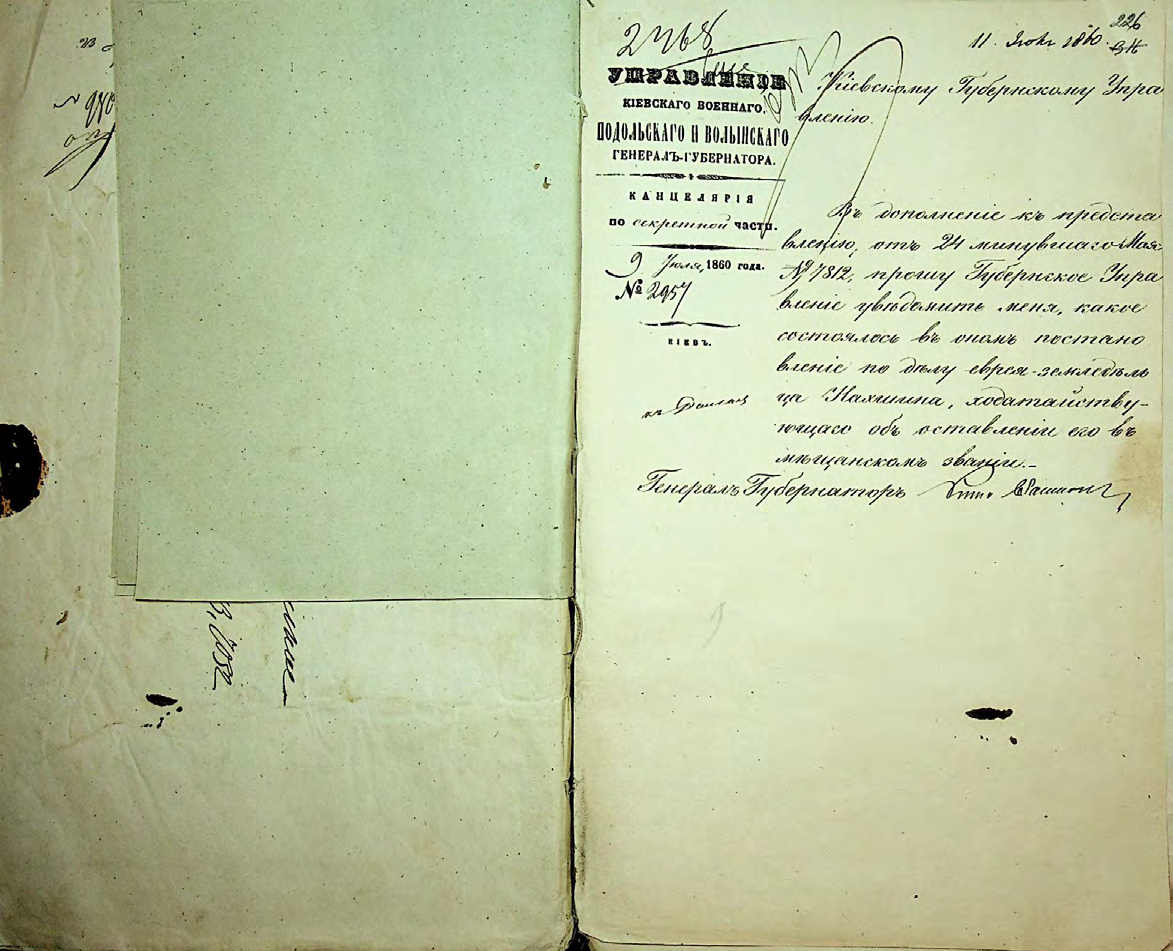 226
11 Июля 1860.
2768
УПРАВЛЕНІЕ
КІЕВСКАГО ВОЕННАГО,
ПОДОЛЬСКАГО И ВОЛЫНСКАГО
ГЕНЕРАЛЪ-ГУБЕРНАТОРА.
КАНЦЕЛЯРІЯ
по секретной части.
9 Іюля, 1860 года.
№ 2957
КІЕВЪ.
Кіевскому Губернскому Упра
вленію.
Въ дополненіе къ предста
вленію, отъ 24 минувшаго Мая
№ 4812, прошу Губернское Упра
вленіе увѣдомить меня, какое
состоялось въ ономъ постано
вленіе по дѣлу еврея-земледѣль
ца Нахшина, ходатайству-
ющаго объ оставленіи его въ
мѣщанскомъ званіи.-
Генералъ Губернаторъ